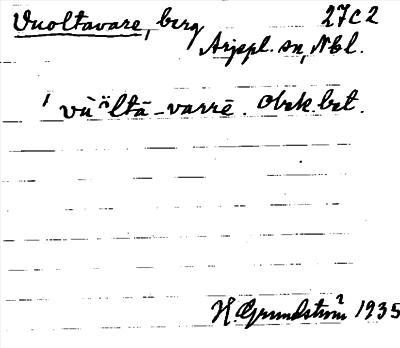 Vuoltavare, berg 27c2
Arjepl. sn, Nbl.
' vu̇̀ᵒltā-varrē. Obek. bet.
H. Grundström 1935